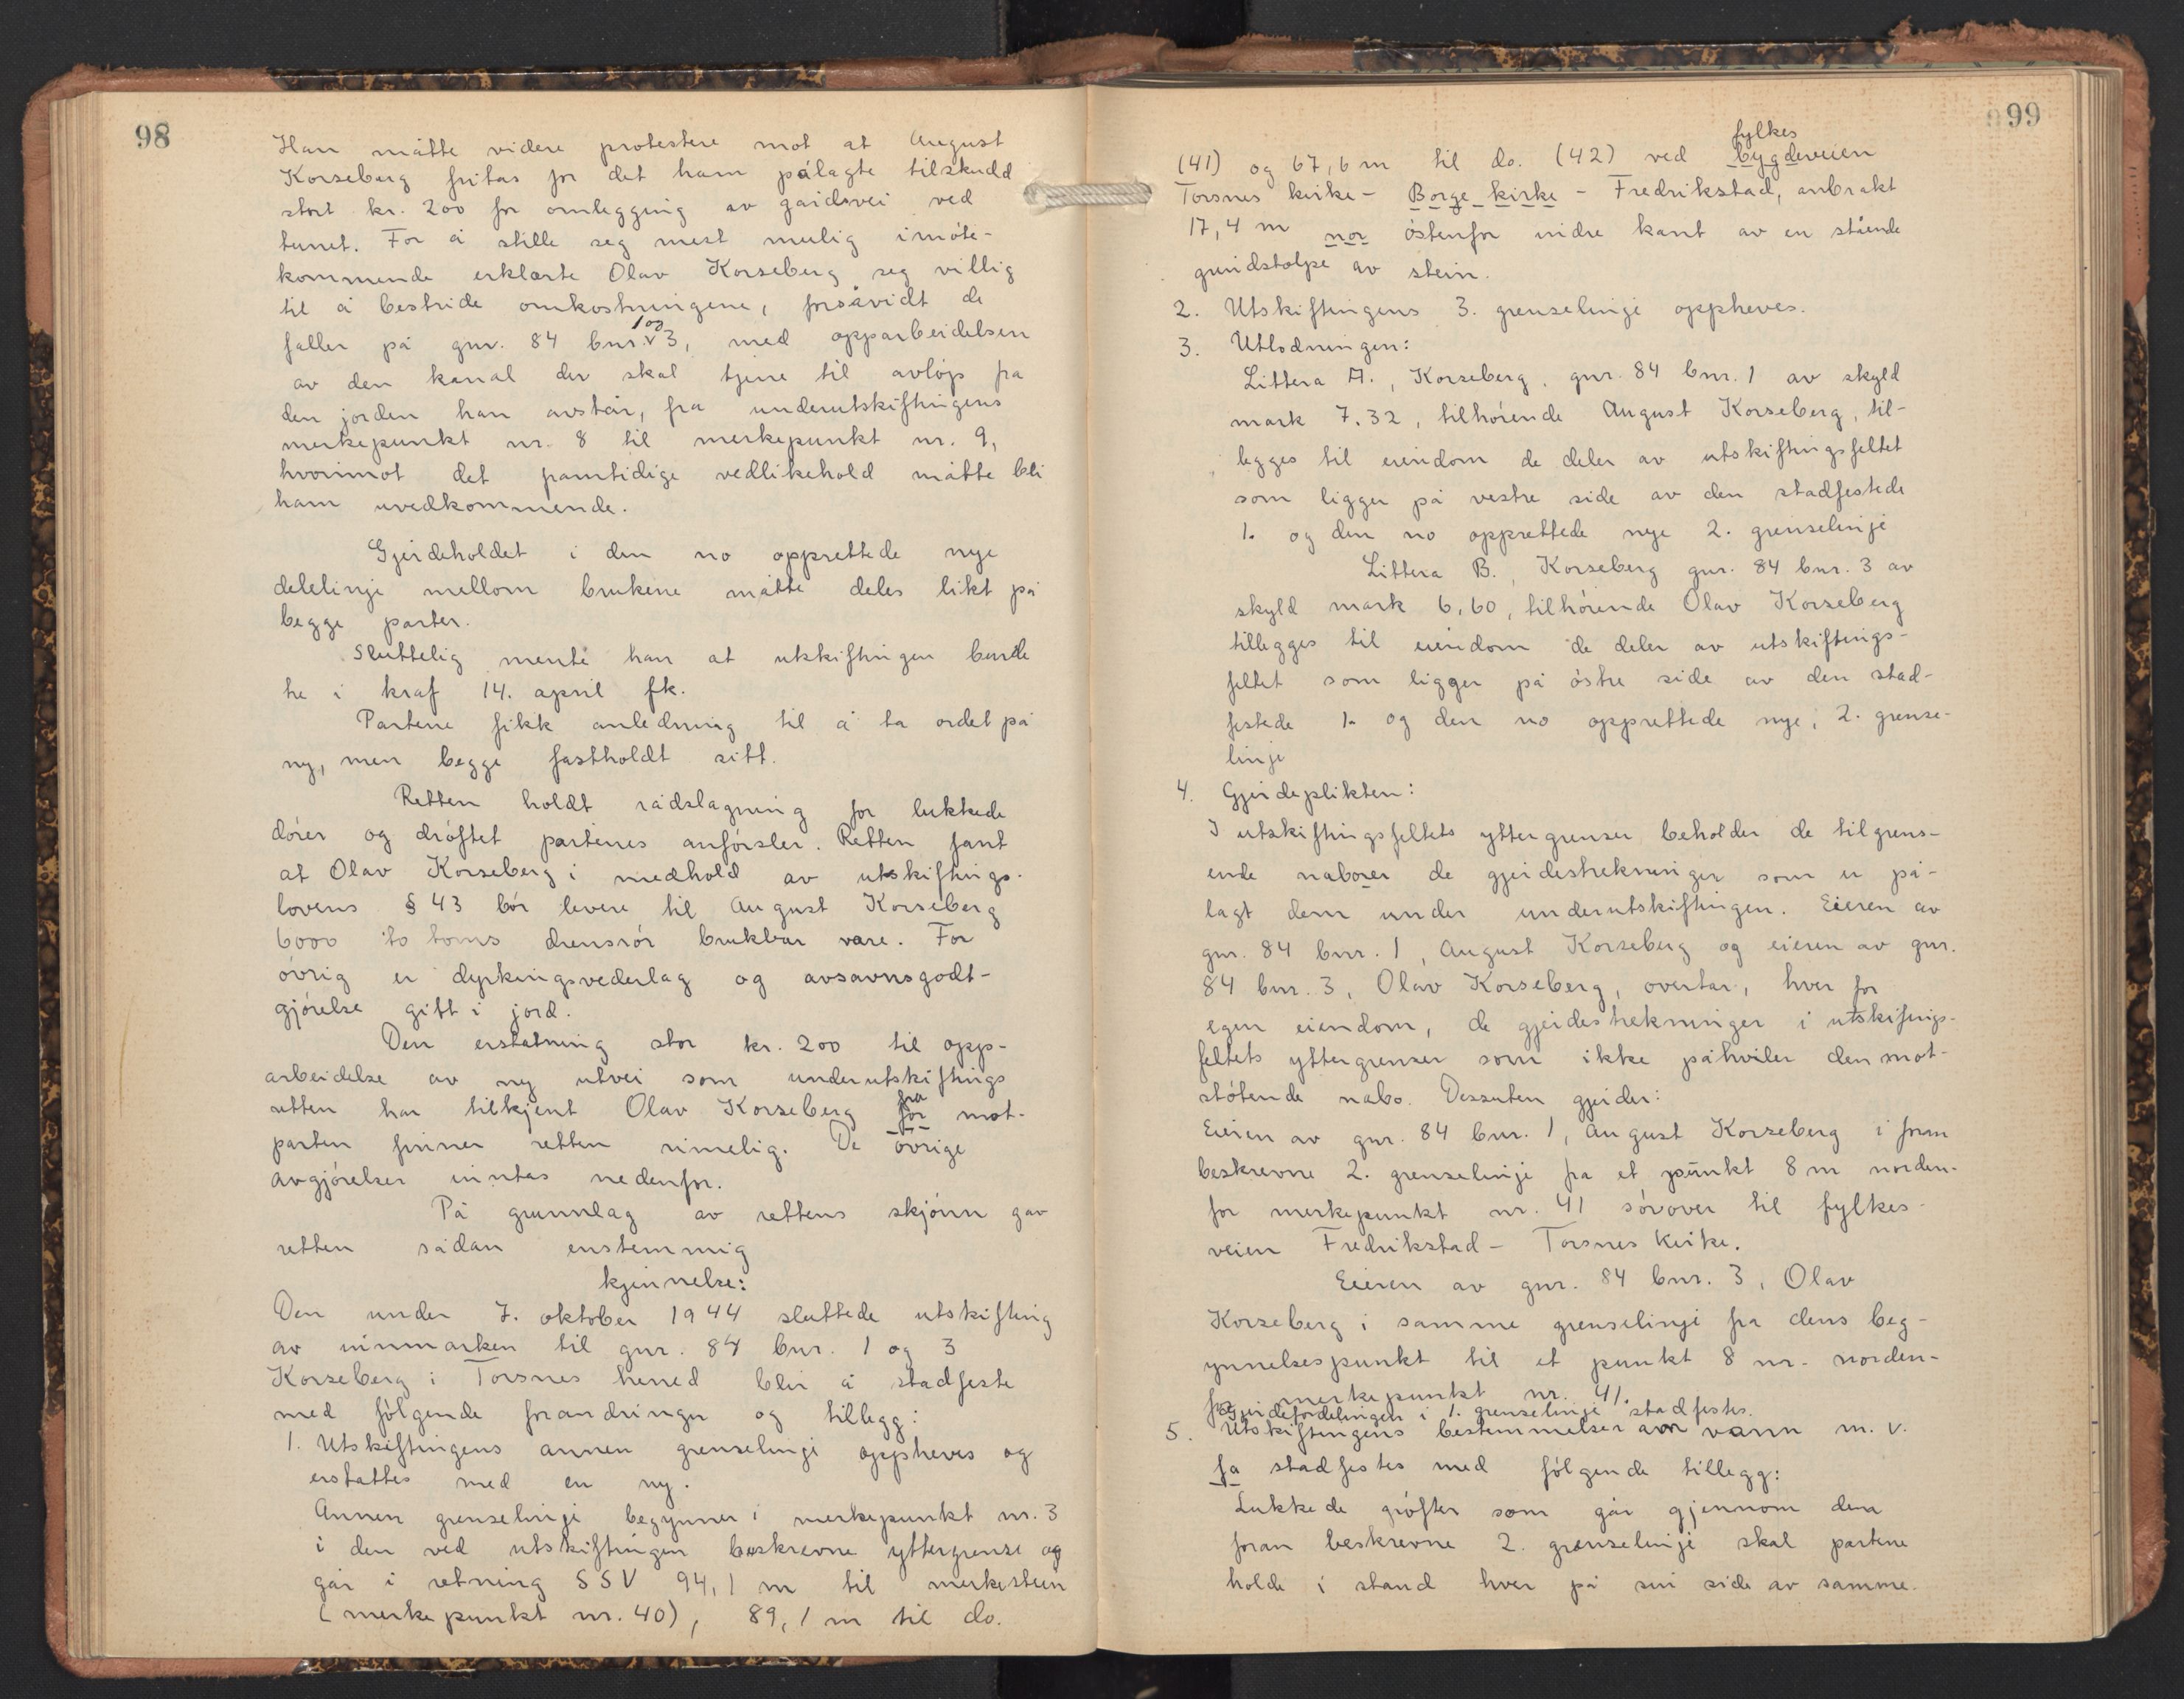 98
Han måtte videre protestere mot at August
Korseberg fritas for det ham pålagte tilskudd
stort kr. 200 for omlegging av gårdsvei ved
tunet. For å stille seg mest mulig imøte-
kommende erklærte Olav Korseberg seg villig
til å bestride omkostningene, forsåvidt de
faller på gnr. 84 bnr. 1 og 3, med opparbeidelsen
av den kanal der skal tjene til avløp fra
den jorden han avstår, fra underutskiftingens
merkepunkt nr. 8 til merkepunkt nr. 9,
hvorimot det framtidige vedlikehold måtte bli
ham uvedkommende.
Gjerdeholdet i den no opprettede nye
delelinje mellom brukene måtte deles likt på
begge parter.
Sluttelig mente han at utskiftingen burde
tre i kraf 14. april fk.
Partene fikk anledning til å ta ordet på
ny, men begge fastholdt sitt.
Retten holdt rådslagning for lukkede
dører og drøftet partenes anførsler. Retten fant
at Olav Korseberg i medhold av utskiftings-
lovens § 43 bør levere til August Korseberg
6000 to toms drensrør brukbar vare. For
øvrig er dyrkingsvederlag og avsavnsgodt-
gjørelse gitt i jord.
Den erstatning stor kr. 200 til opp-
arbeidelse av ny utvei som underutskiftings
retten har tilkjent Olav Korseberg for fra mot-
parten finner retten rimelig. De øvrige
avgjørelser inntas nedenfor.
På grunnlag av rettens skjønn gav
retten sådan enstemmig
kjennelse:
Den under 7. oktober 1944 sluttede utskifting
av innmarken til gnr. 84 bnr. 1 og 3
Korseberg i Torsnes herred blir å stadfeste
med følgende forandringer og tillegg:
1. Utskiftingens annen grenselinje oppheves og
erstattes med en ny.
Annen grenselinje begynner i merkepunkt nr. 3
i den ved utskiftingen beskrevne yttergrense og
går i retning SSV 94,1 m til merkestein
(merkepunkt nr. 40), 89,1 m til do.
99
fylkes
(41) og 67,6 m til do. (42) ved bygdeveien
Torsnes kirke - Borge kirke - Fredrikstad, anbrakt
17,4 m nor østenfor indre kant av en stående
grindstolpe av stein.
2. Utskiftingens 3. grenselinje oppheves.
3. Utlodningen:
Littera A., Korseberg, gnr. 84 bnr. 1 av skyld
mark 7.32, tilhørende August Korseberg, til-
legges til eiendom de deler av utskiftingsfeltet
som ligger på vestre side av den stadfestede
1. og den no opprettede nye 2. grenselinje
Littera B., Korseberg gnr. 84 bnr. 3 av
skyld mark 6,60, tilhørende Olav Korseberg
tillegges til eiendom de deler av utskiftings-
feltet som ligger på østre side av den stad-
festede 1. og den no opprettede nye, 2. grense-
linje
4. Gjerdeplikten:
I utskiftingsfeltets yttergrenser beholder de tilgrens-
ende naboer de gjerdestrekninger som er på-
lagt dem under underutskiftingen. Eieren av
gnr. 84 bnr. 1, August Korseberg og eieren av gnr.
84 bnr. 3, Olav Korseberg, overtar, hver for
egen eiendom, de gjerdestrekninger i utskifings-
feltets yttergrenser som ikke påhviler den mot-
støtende nabo. Dessuten gjerder:
Eieren av gnr. 84 bnr. 1, August Korseberg i foran
beskrevne 2. grenselinje fra et punkt 8 m norden-
for merkepunkt nr. 41 sørover til fylkes-
veien Fredrikstad - Torsnes kirke.
Eieren av gnr. 84 bnr. 3, Olav
Korseberg i samme grenselinje fra dens beg-
ynnelsespunkt til et punkt 8 m. norden-
for merkepunkt nr. 41.
Gjerdefordelingen i 1. grenselinje stadfestes.
5. Utskiftingens bestemmelser om vann m. v.
fa stadfestes med følgende tillegg:
Lukkede grøfter som går gjennom den
foran beskrevne 2. grenselinje skal partene
holde i stand hver på sin side av samme.